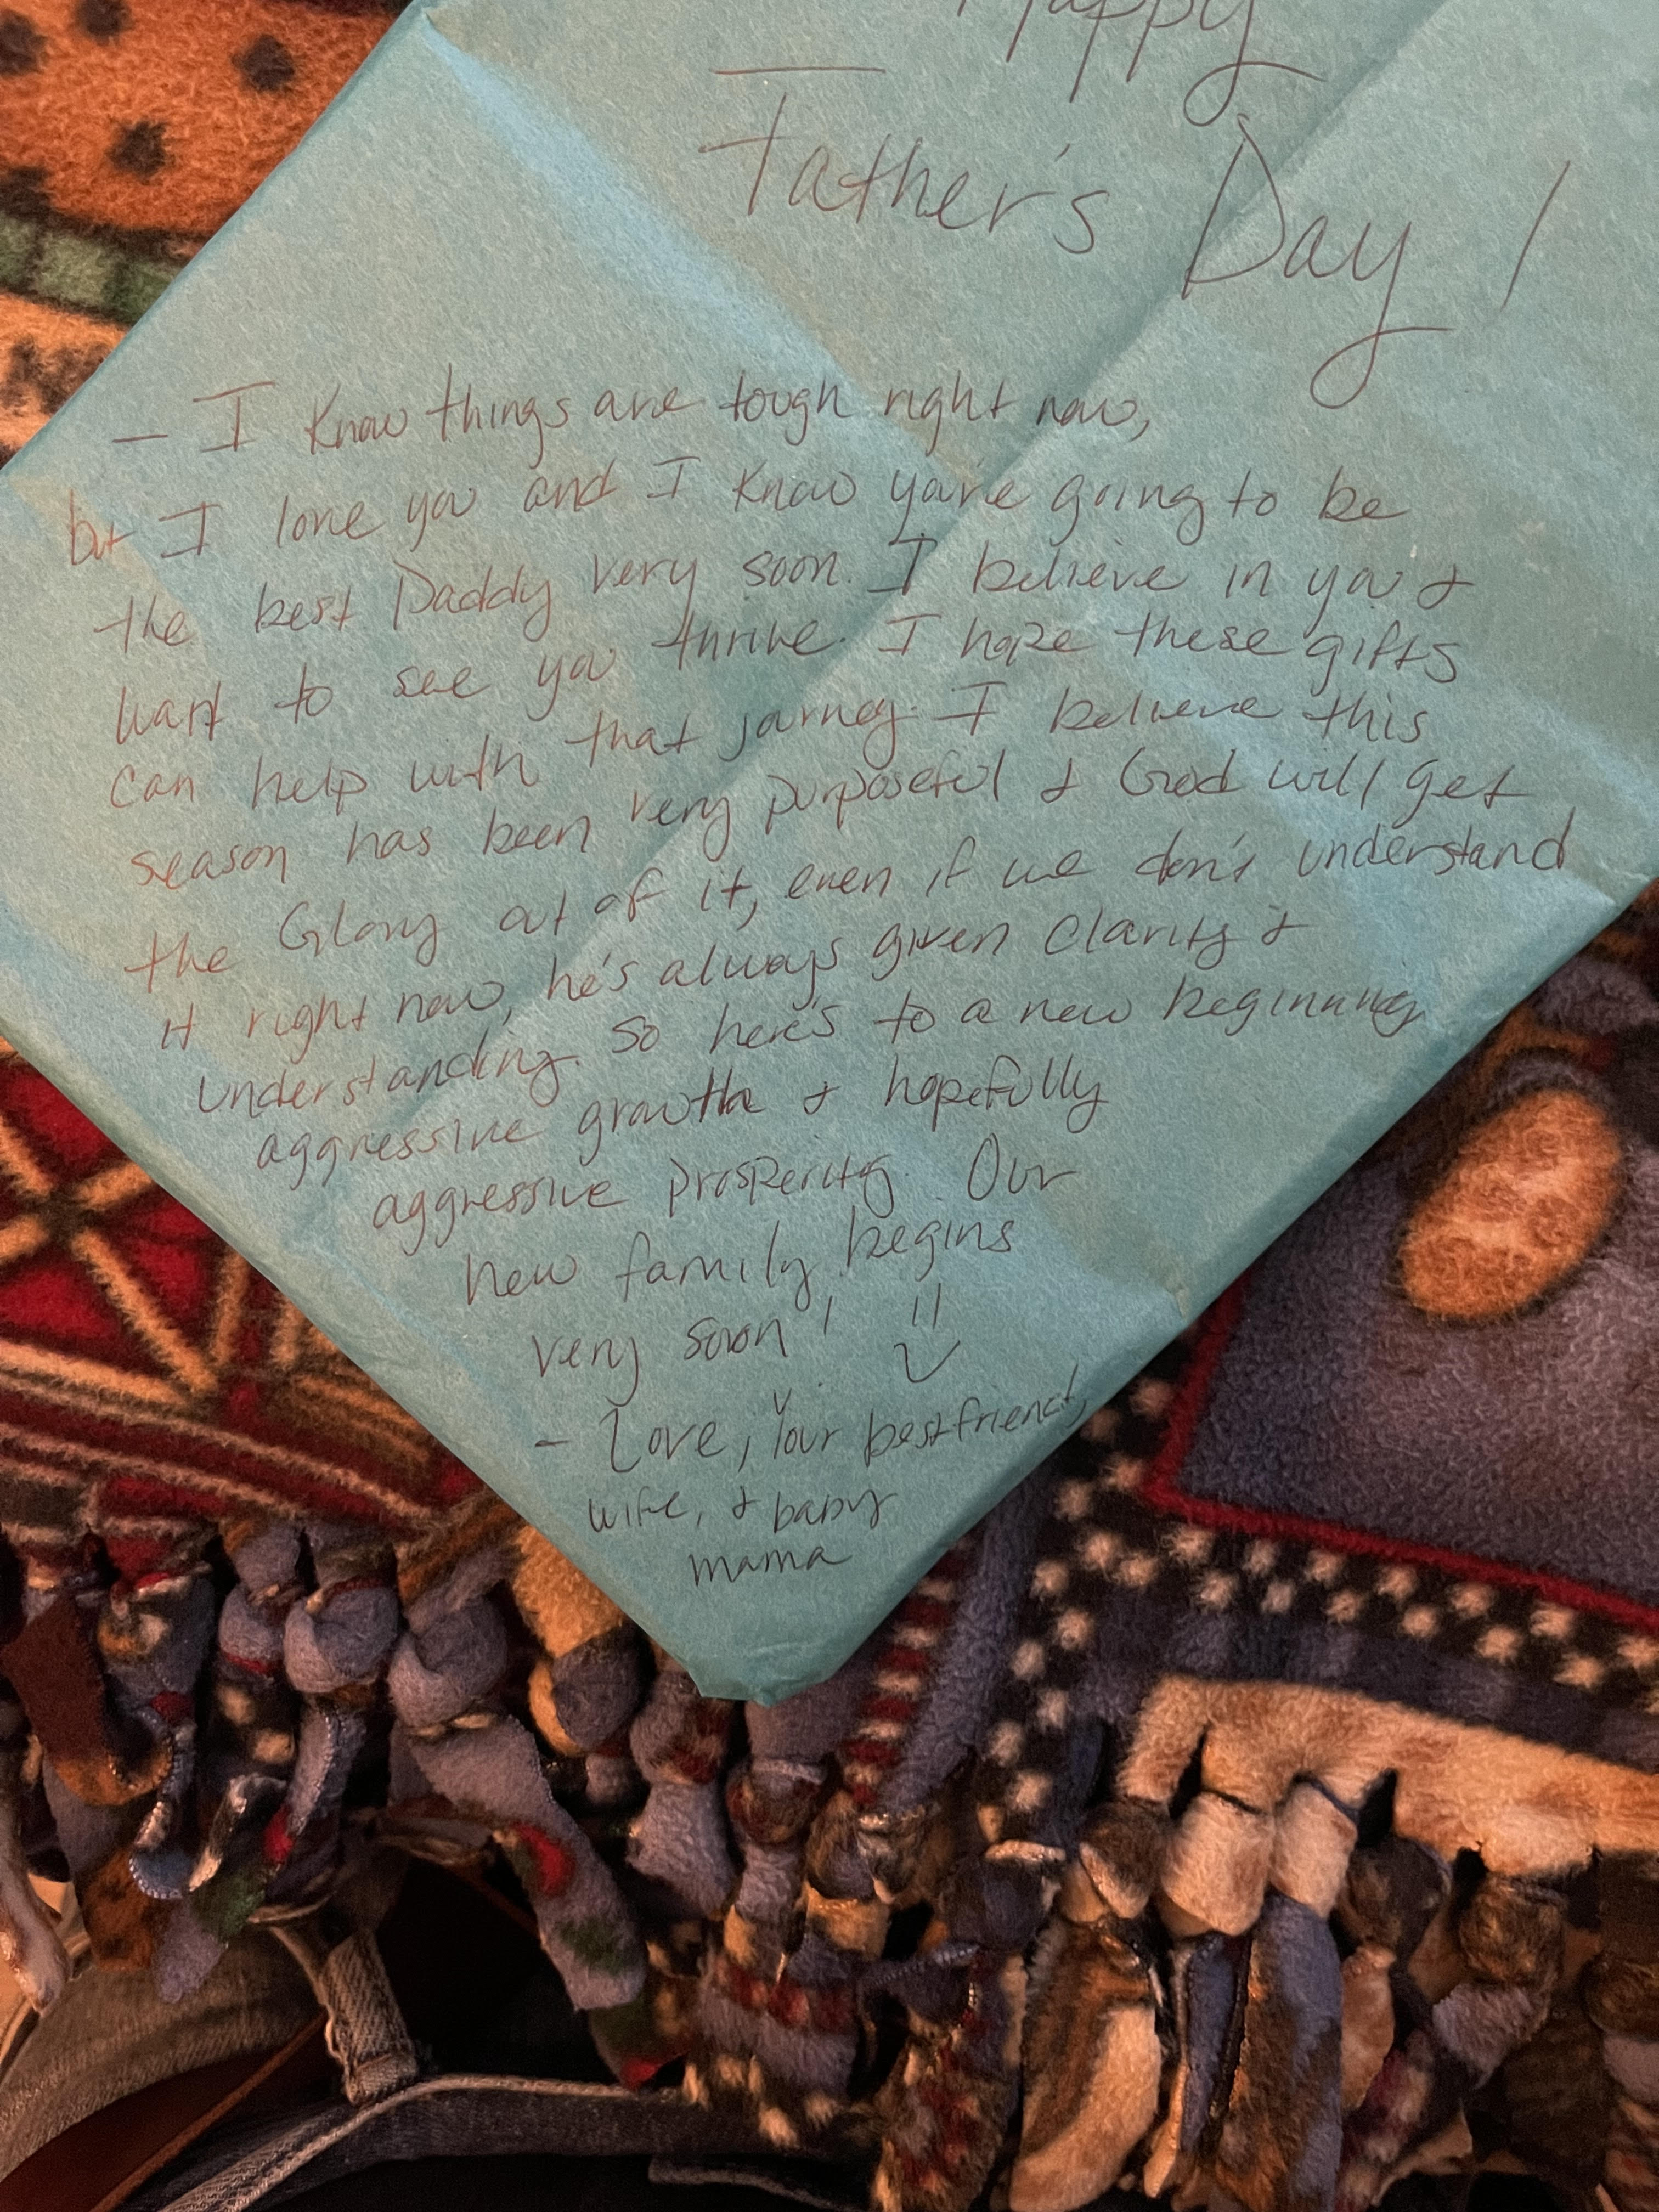 Happy
Father's Day!
- I know things are tough right now,
but I love you and I know you're going to be
the best Daddy very soon. I believe in you &
want to see you thrive. I hope these gifts
can help with that journey. I believe this
season has been very purposeful & God will get
the Glory out of it, even if we don't understand
it right now, he's always given clarity &
understanding. So here's to a new beginning,
aggressive growth & hopefully
aggressive prosperity. Our
new family begins
very soon!
- Love, Your bestfriend,
wife, & baby
mama